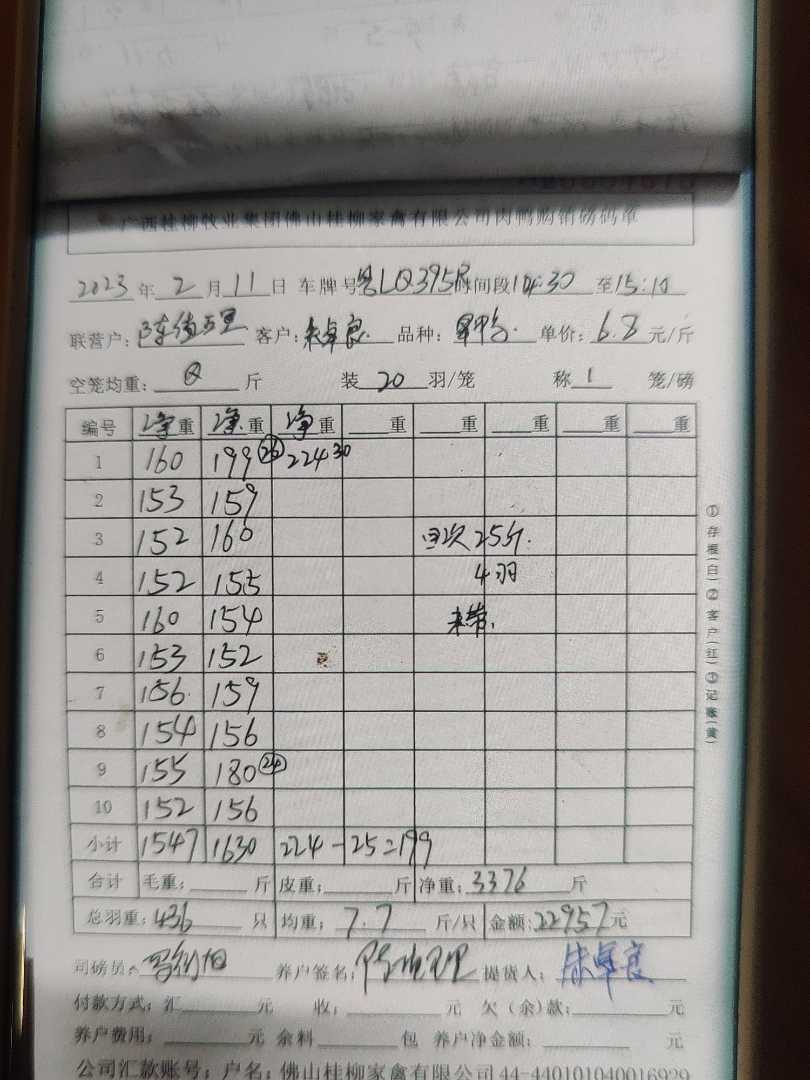 广西桂柳牧业集团佛山桂柳家禽有限公司肉鸭购销磅码单
2023年2月11日 车牌号:粤LQ395R 时间段14:30至15:10
联营户: 客户:朱卓良 品种: 单价:6.8元/斤
空笼均重:0斤 装20羽/笼 称1笼/磅
编号 净重 净重 净重 重 重 重 重 重
1 160 199 26 224 30
2 153 159
3 152 160 回次25斤.
4 152 155 4羽
5 160 154 未带.
6 153 152
7 156 159
8 154 156
9 155 180 24
10 152 156
小计 1547 1630 224-25=199
合计 毛重: 斤 皮重: 斤 净重:3376斤
总羽重:436只 均重:7.7斤/只 金额:22957元
司磅员: 养户签名: 提货人:朱卓良
付款方式:汇 元 收: 元 欠(余)款: 元
养户费用: 元 余料 包 养户净金额: 元
公司汇款账号:户名:佛山桂柳家禽有限公司44-440101040016929
①存根(白)②客户(红)③记账(黄)